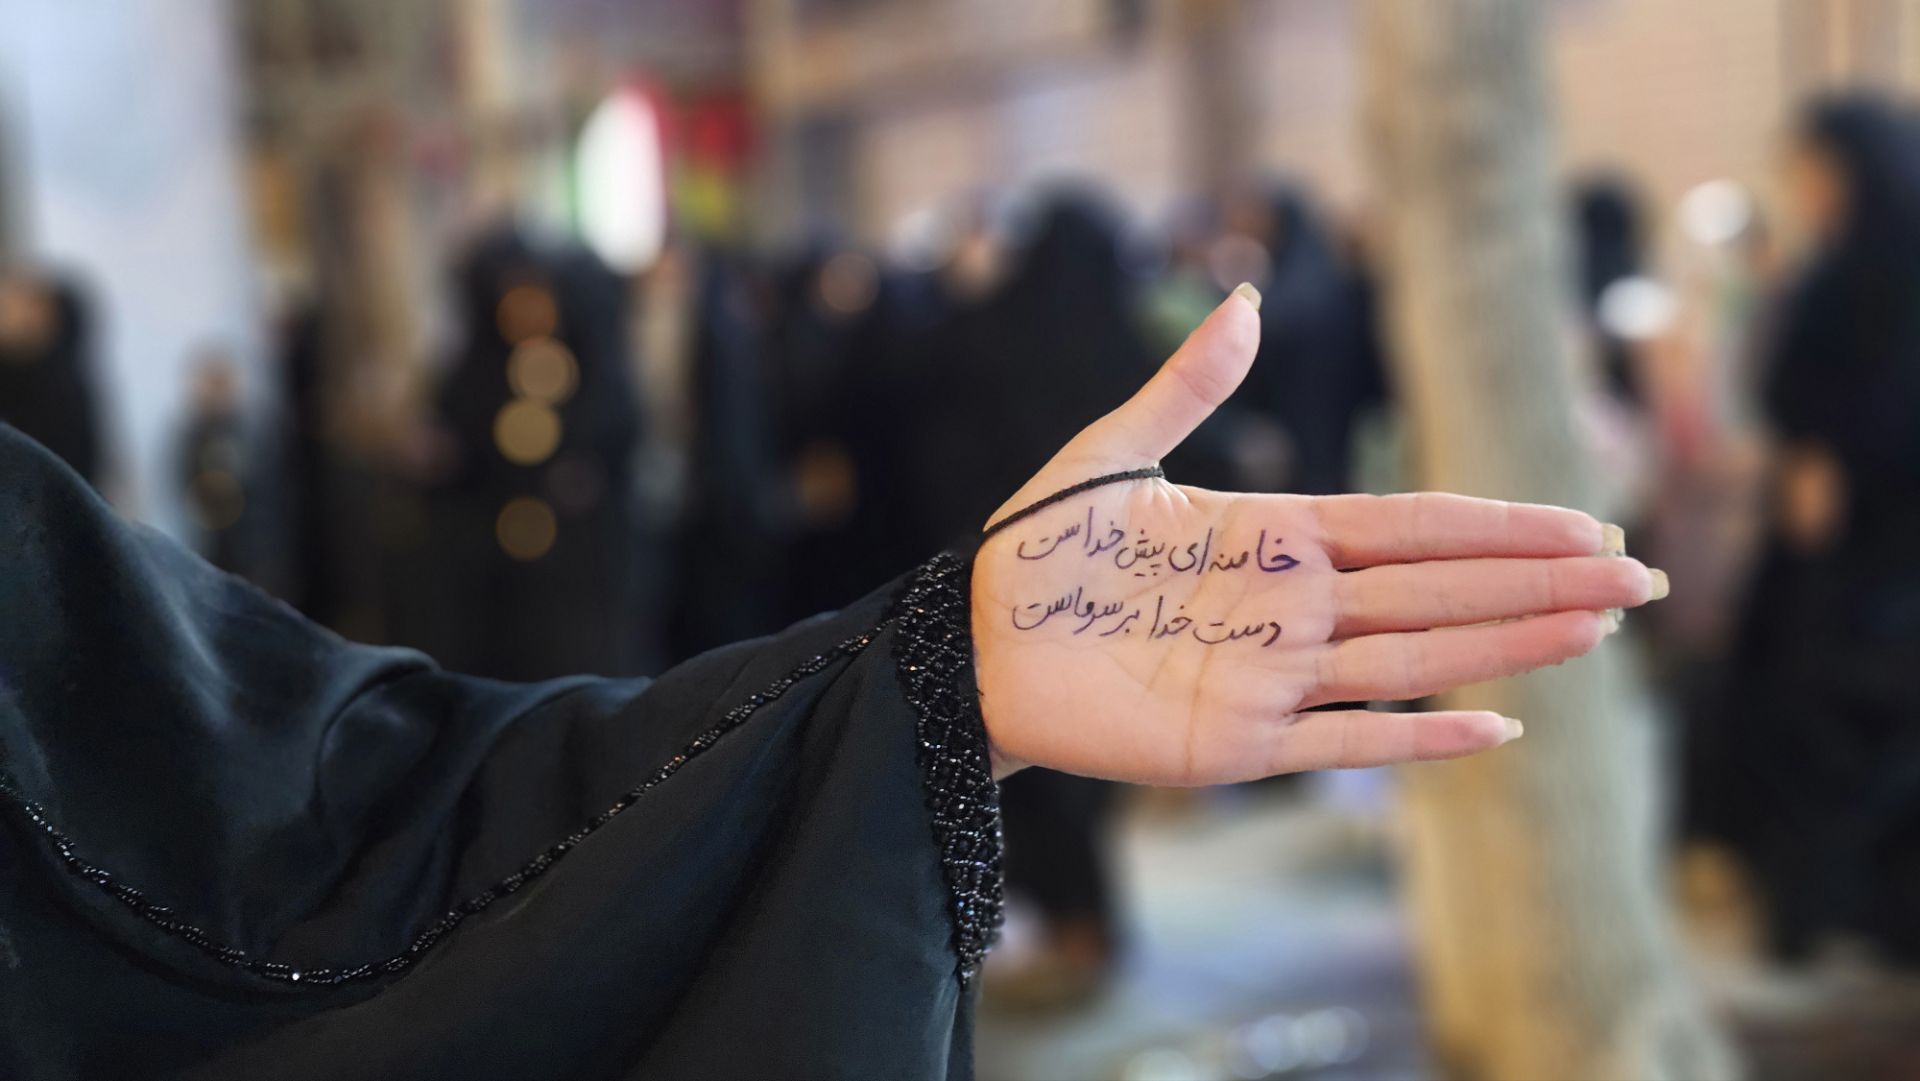 خامنه ای پیش خداست
دست خدا بر سر ماست